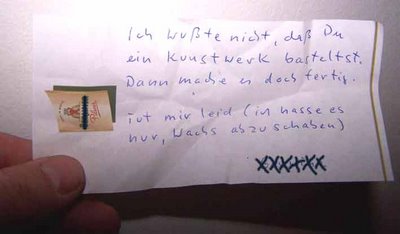 Ich wußte nicht, daß Du
ein Kunstwerk bastelst.
Dann mache es doch fertig.
Tut mir leid (ich hasse es
nur, Wachs abzuschaben)
xxxxxx